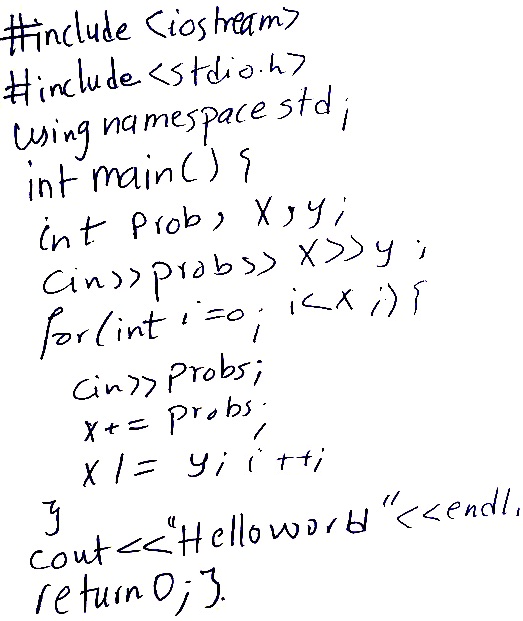 #include <iostream>
#include <stdio.h>
using namespace std;
int main() {
int Prob, X, y;
cin>>probs>> X>>y ;
for(int i=0; i<X ;) {
cin>> Probs;
x+= Probs;
x /= y; i ++;
}
cout<<"Hello word"<<endl.
return 0; }.